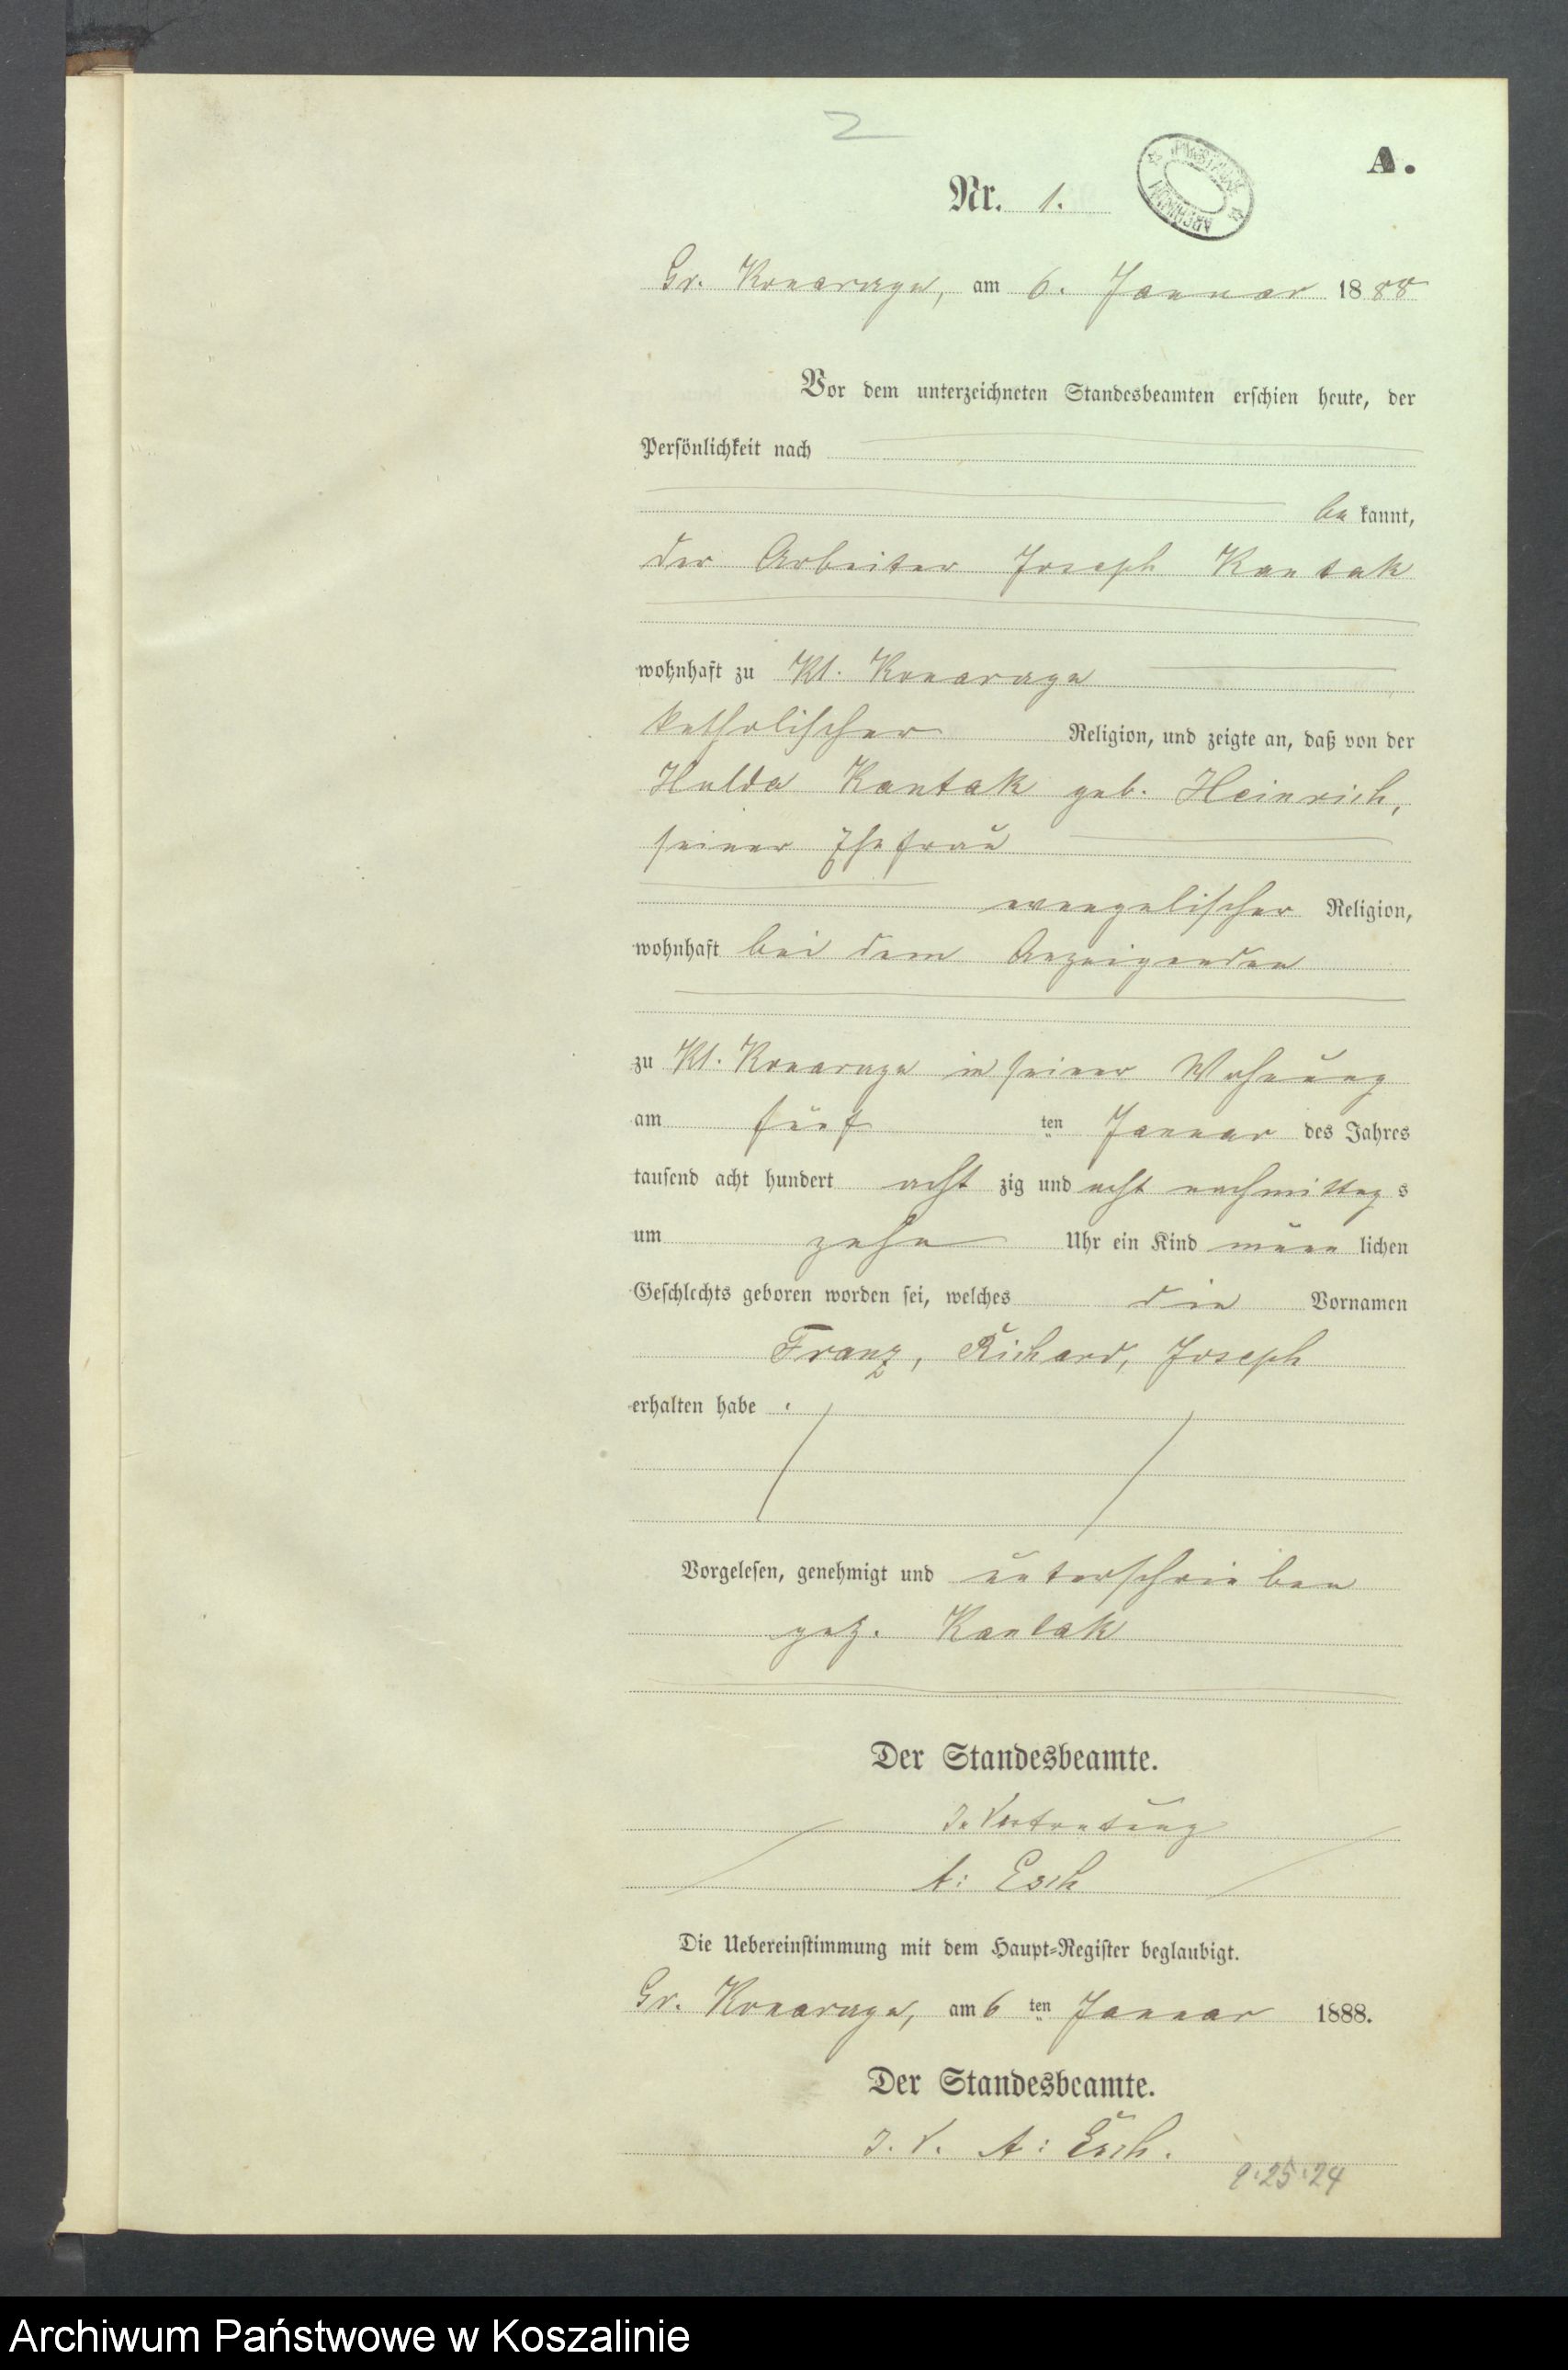 2
A.
Nr. 1.
Gr. Konarczyn, am 6. Januar 1888
Vor dem unterzeichneten Standesbeamten erschien heute, der
Persönlichkeit nach
be kannt,
der Arbeiter Joseph Kantak
wohnhaft zu Kl. Konarczyn
katholischer Religion, und zeigte an, daß von der
Hulda Kantak geb. Heinrich,
seiner Ehefrau
evangelischer Religion,
wohnhaft bei dem Anzeigenden
zu Kl. Konarczyn in seiner Wohnung
am fünf ten Januar des Jahres
tausend acht hundert acht zig und acht nachmittag s
um zehn Uhr ein Kind männ lichen
Geschlechts geboren worden sei, welches die Vornamen
Franz, Richard, Joseph
erhalten habe.
Vorgelesen, genehmigt und unterschrieben
gez. Kantak
Der Standesbeamte.
In Vertretung
A: Esch
Die Uebereinstimmung mit dem Haupt-Register beglaubigt.
Gr. Konarczyn, am 6 ten Januar 1888.
Der Standesbeamte.
I. V. A: Esch.
Archiwum Państwowe w Koszalinie